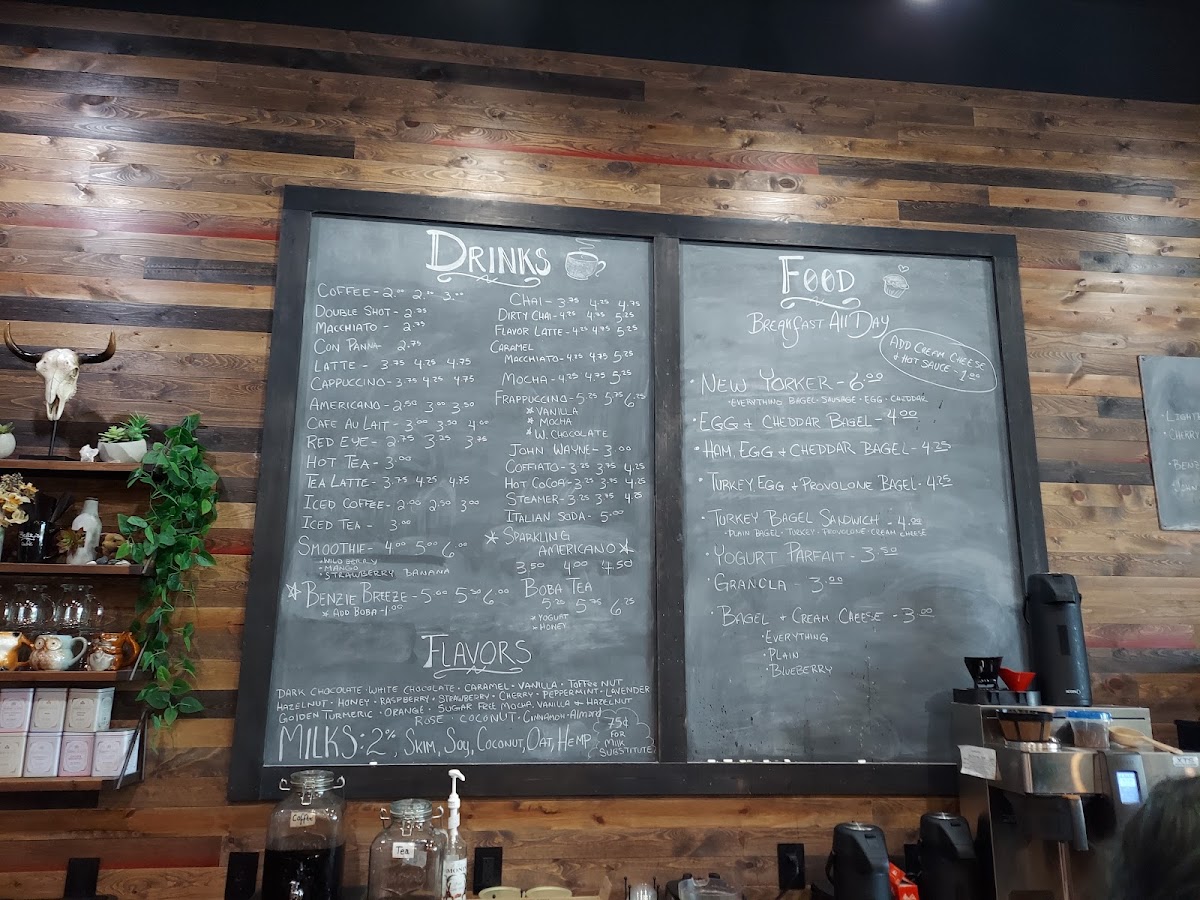 DRINKS
COFFEE - 2.00 2.50 3.00
DOUBLE SHOT - 2.75
MACCHIATO - 2.75
CON PANNA 2.75
LATTE - 3.75 4.25 4.75
CAPPUCCINO - 3.75 4.25 4.75
AMERICANO - 2.50 3.00 3.50
CAFE AU LAIT - 3.00 3.50 4.00
RED EYE - 2.75 3.25 3.75
HOT TEA - 3.00
TEA LATTE - 3.75 4.25 4.75
ICED COFFEE - 2.00 2.50 3.00
ICED TEA - 3.00
SMOOTHIE - 4.00 5.00 6.00
• WILD BERRY
• MANGO
• STRAWBERRY BANANA
* BENZIE BREEZE - 5.00 5.50 6.00
* ADD BOBA - 1.00
CHAI - 3.75 4.25 4.75
DIRTY CHAI - 4.25 4.75 5.25
FLAVOR LATTE - 4.25 4.75 5.25
CARAMEL
MACCHIATO - 4.25 4.75 5.25
MOCHA - 4.25 4.75 5.25
FRAPPUCCINO - 5.25 5.75 6.25
* VANILLA
* MOCHA
* W. CHOCOLATE
JOHN WAYNE - 3.00
COFFIATO - 3.25 3.75 4.25
HOT COCOA - 3.25 3.75 4.25
STEAMER - 3.25 3.75 4.25
ITALIAN SODA - 5.00
* SPARKLING
AMERICANO *
3.50 4.00 4.50
BOBA TEA
5.25 5.75 6.25
* YOGURT
* HONEY
FLAVORS
DARK CHOCOLATE • WHITE CHOCOLATE • CARAMEL • VANILLA • TOFFEE NUT
HAZELNUT • HONEY • RASPBERRY • STRAWBERRY • CHERRY • PEPPERMINT • LAVENDER
GOLDEN TURMERIC • ORANGE • SUGAR FREE MOCHA, VANILLA & HAZELNUT
ROSE • COCONUT • CINNAMON • ALMOND
MILKS: 2%, SKIM, SOY, COCONUT, OAT, HEMP
75¢
FOR
MILK
SUBSTITUTE
FOOD
BREAKFAST ALL DAY
ADD CREAM CHEESE
& HOT SAUCE - 1.00
• NEW YORKER - 6.00
• EVERYTHING BAGEL • SAUSAGE • EGG • CHEDDAR
• EGG & CHEDDAR BAGEL - 4.00
• HAM, EGG & CHEDDAR BAGEL - 4.25
• TURKEY EGG & PROVOLONE BAGEL - 4.25
• TURKEY BAGEL SANDWICH - 4.00
• PLAIN BAGEL • TURKEY • PROVOLONE • CREAM CHEESE
• YOGURT PARFAIT - 3.50
• GRANOLA - 3.00
• BAGEL & CREAM CHEESE - 3.00
• EVERYTHING
• PLAIN
• BLUEBERRY
• LIGHT
• CHERRY
• BENZ
Coffee
Tea